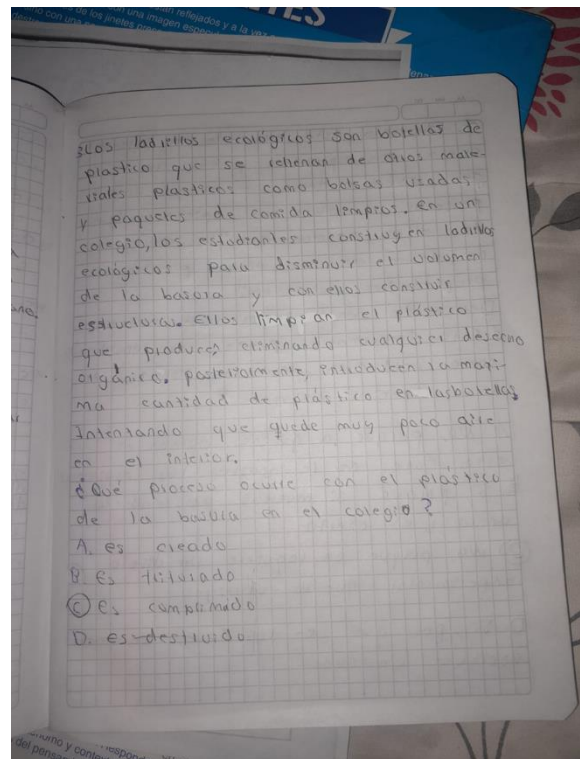 con una imagen espec
reflejados y a la vez
de los jinetes pres
3Los ladrillos ecológicos son botellas de
plastico que se rellenan de otros mate-
riales plasticos como bolsas usadas
y paquetes de comida limpios. en un
colegio, los estudiantes construyen ladrillos
ecológicos para disminuir el volumen
de la basura y con ellos construir
estructuras. Ellos limpian el plástico
que producen eliminando cualquier desecho
orgánico. posteriormente, introducen la maxi-
ma cantidad de plástico en las botellas
Intentando que quede muy poco aire
en el interior.
¿Qué proceso ocurre con el plástico
de la basura en el colegio?
A. es creado
B. es triturado
C es comprimado
D. es destruido